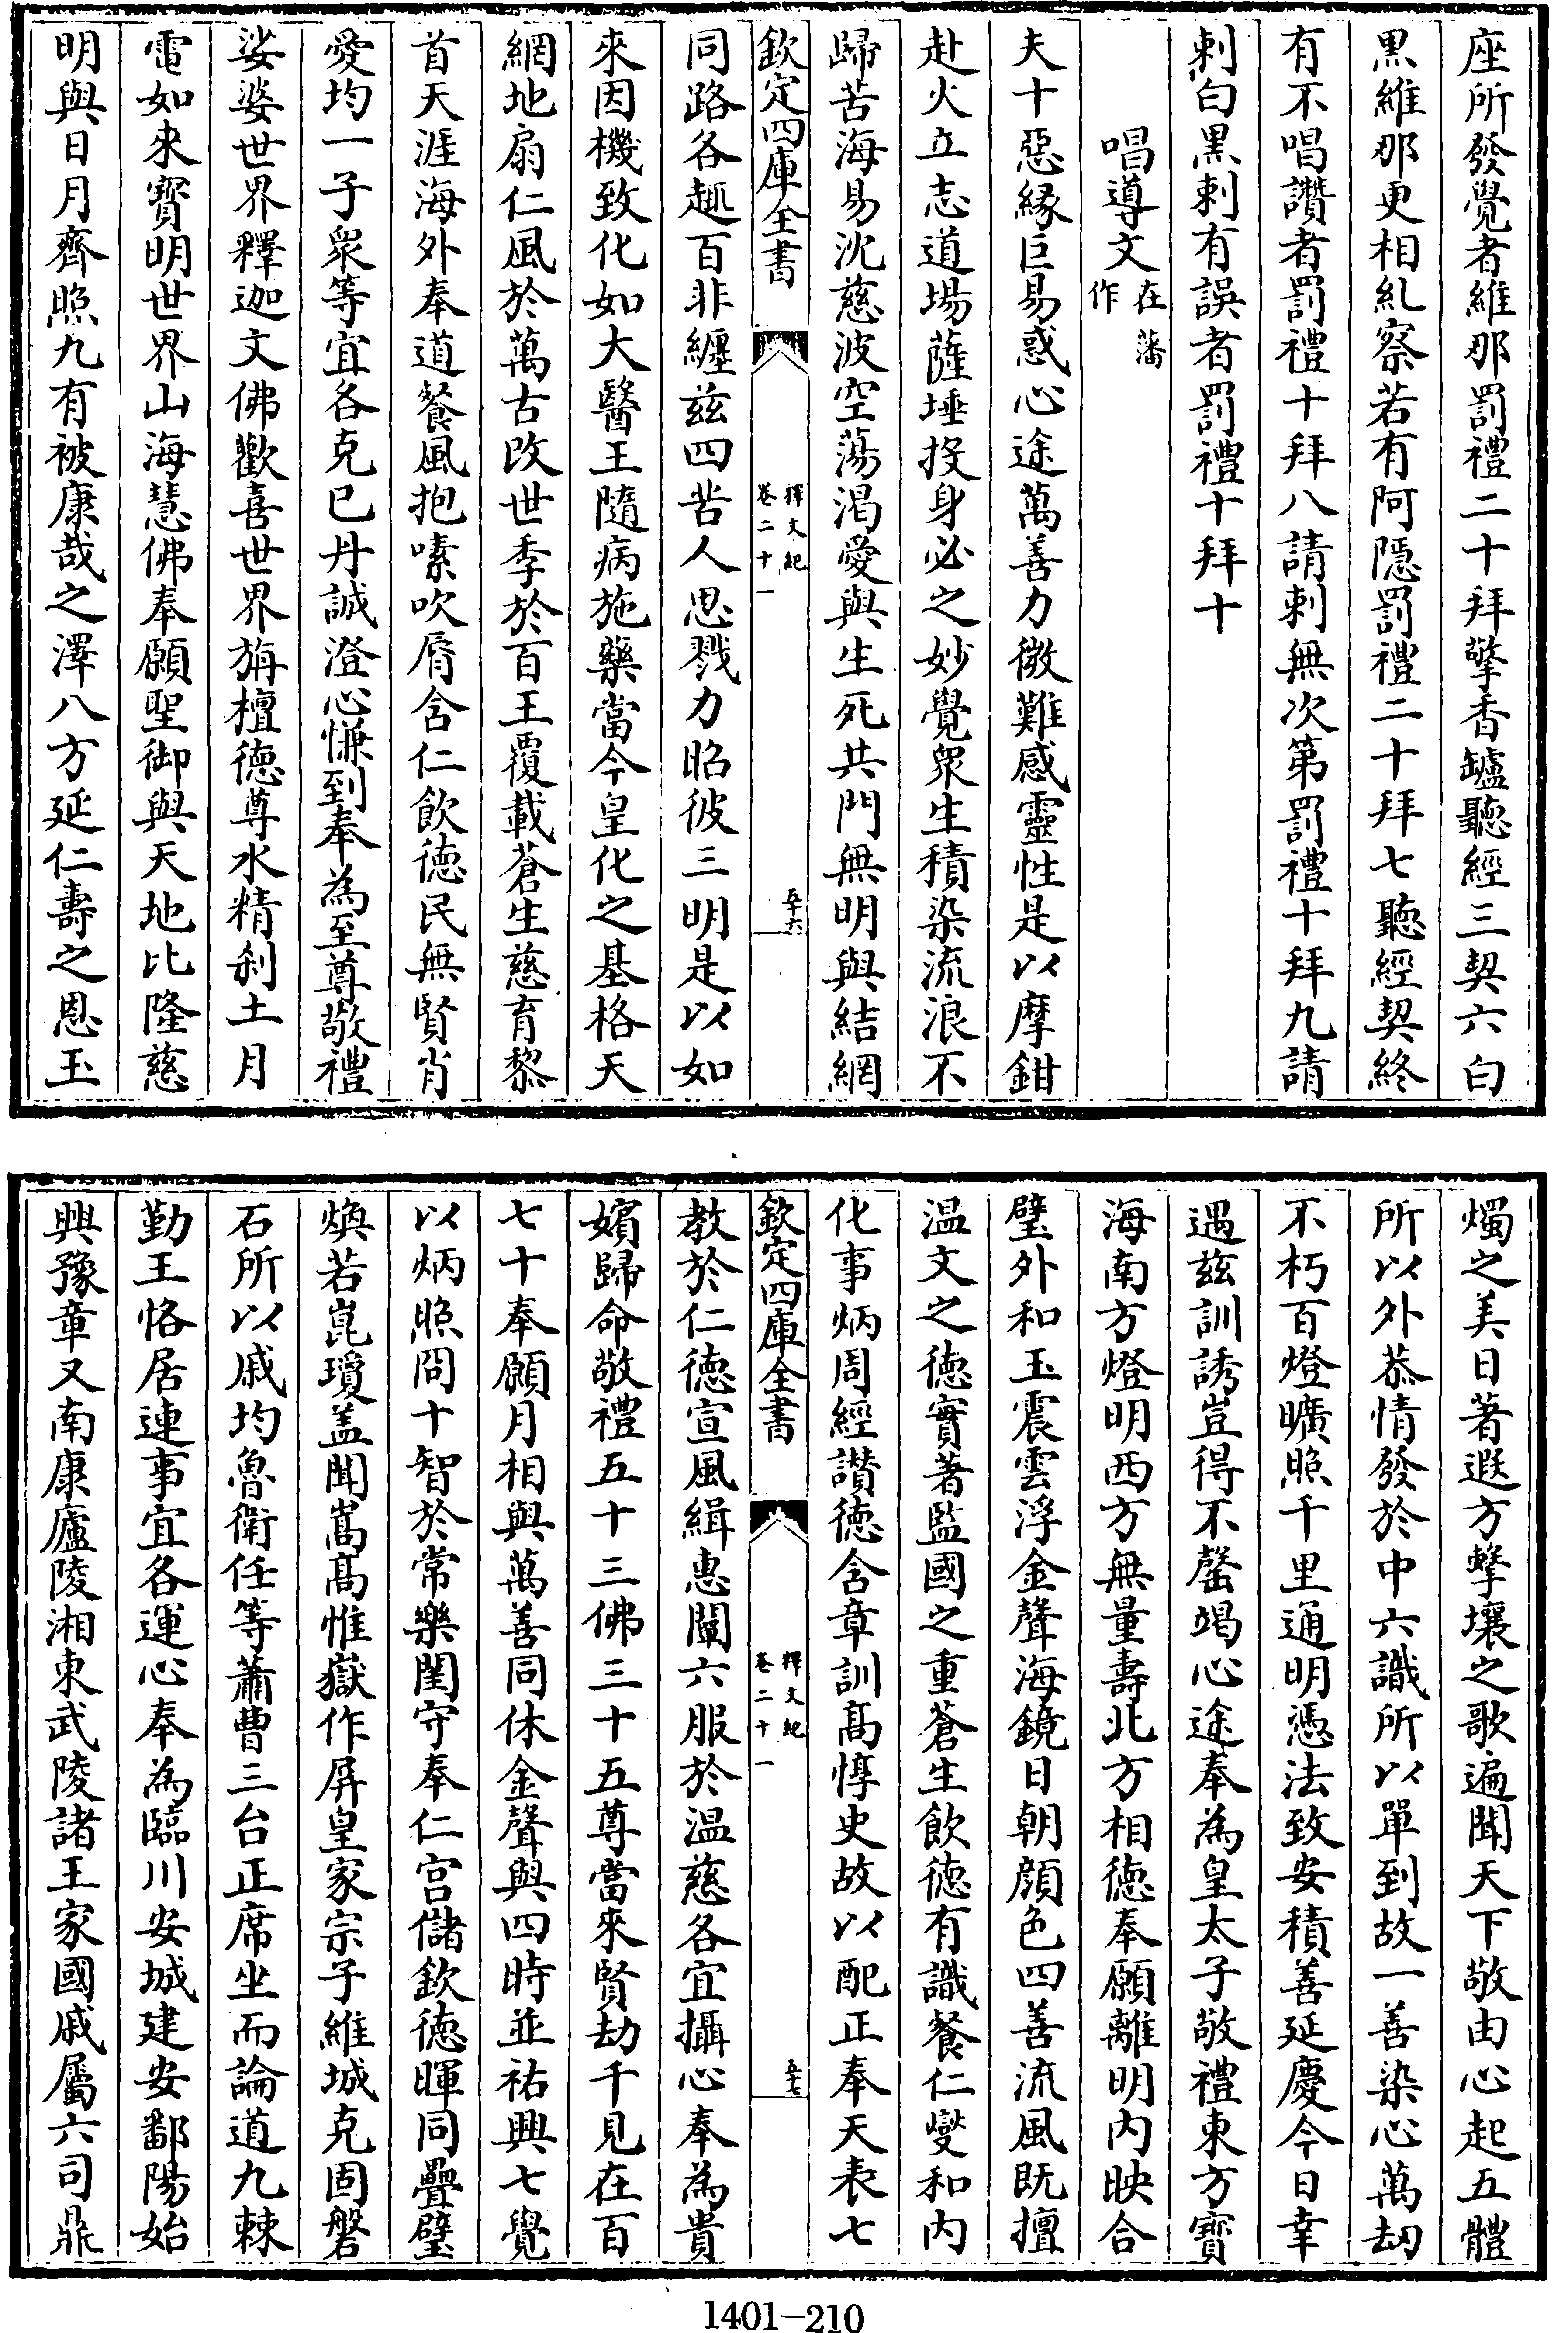 座所發覺者維那罰禮二十拜擎香罏聽經三契六白
黒維那更相糺察若有阿隱罰禮二十拜七聽經契終
有不唱讚者罰禮十拜八請刺無次第罰禮十拜九請
刺白黒刺有誤者罰禮十拜十
唱導文在蕃作
夫十惡縁巨易惑心途萬善力微難感靈性是以摩鉗
赴火立志道場薩埵投身必之妙覺衆生積染流浪不
歸苦海易沈慈波空蕩渇愛與生死共門無明與結網
欽定四庫全書
釋文紀
卷二十一
五十六
同路各趣百非纒兹四苦人思戮力昭彼三明是以如
來因機致化如大醫王隨病施藥當今皇化之基格天
網地扇仁風於萬古改世季於百王覆載蒼生慈育黎
首天涯海外奉道餐風抱嗉吹脣含仁飲德民無賢肖
愛均一子衆等宜各克已丹誠澄心慊到奉為至尊敬禮
娑婆世界釋迦文佛歡喜世界旃檀德尊水精刹土月
電如來寳明世界山海慧佛奉願聖御與天地比隆慈
明與日月齊照九有被康哉之澤八方延仁壽之恩玉
燭之美日著遐方擊壤之歌遍聞天下敬由心起五體
所以外恭情發於中六識所以單到故一善染心萬刧
不朽百燈曠照千里通明憑法致安積善延慶今日幸
遇兹訓誘豈得不罄竭心途奉為皇太子敬禮東方寳
海南方燈明西方無量壽北方相德奉願離明內映合
璧外和玉震雲浮金聲海鏡日朝顔色四善流風既擅
温文之德實著監國之重蒼生飲德有識餐仁燮和内
化事炳周經讃德含章訓髙惇史故以配正奉天表七
欽定四庫全書
釋文紀
卷二十一
五十七
教於仁德宣風緝惠闡六服於温慈各宜攝心奉為貴
嬪歸命敬禮五十三佛三十五尊當來賢劫千見在百
七十奉願月相與萬善同休金聲與四時並祐興七覺
以炳照冏十智於常樂闈守奉仁宫儲欽德暉同疊璧
煥若崑瓊盖聞嵩髙惟嶽作屏皇家宗子維城克固磐
石所以戚均魯衛任等蕭曹三台正席坐而論道九棘
勤王恪居連事宜各運心奉為臨川安城建安鄱陽始
興豫章又南康廬陵湘東武陵諸王家國戚屬六司鼎
1401-210